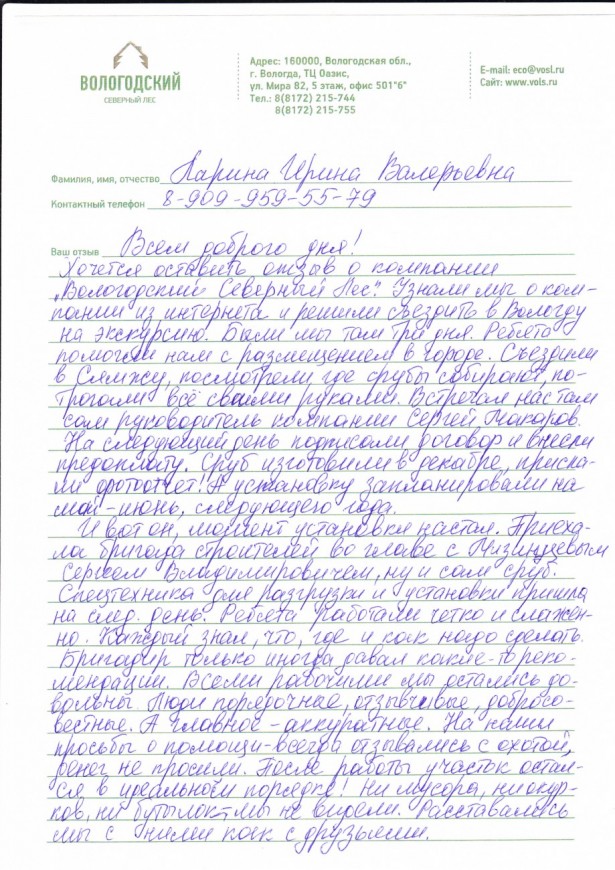 ВОЛОГОДСКИЙ
СЕВЕРНЫЙ ЛЕС
Адрес: 160000, Вологодская обл.,
г. Вологда, ТЦ Оазис,
ул. Мира 82, 5 этаж, офис 501"б"
Тел.: 8(8172) 215-744
8(8172) 215-755
E-mail: eco@vosl.ru
Сайт: www.vols.ru
Фамилия, имя, отчество Ларина Ирина Валерьевна
Контактный телефон 8-909-959-55-79
Ваш отзыв Всем доброго дня!
Хочется оставить отзыв о компании
„Вологодский Северный Лес". Узнали мы о ком-
пании из интернета и решили съездить в Вологду
на экскурсию. Были мы там три дня. Ребята
помогли нам с размещением в городе. Съездили
в Сямжу, посмотрели, где срубы собирают, по-
трогали всё своими руками. Встречал нас там
сам руководитель компании Сергей Макаров.
На следующий день подписали договор и внесли
предоплату. Сруб изготовили в декабре, присла-
ли фотоотчет! А установку запланировали на
май-июнь, следующего года.
И вот он, момент установки настал. Приеха-
ла бригада строителей во главе с Мизинцевым
Сергеем Владимировичем, ну и сам сруб.
Спецтехника для разгрузки и установки пришла
на след. день. Ребята работали четко и слажен-
но. Каждый знал, что, где и как надо сделать.
Бригадир только иногда давал какие-то реко-
мендации. Всеми рабочими мы остались до-
вольны. Люди порядочные, отзывчивые, добросо-
вестные. А главное - аккуратные. На наши
просьбы о помощи-всегда отзывались с охотой,
денег не просили. После работы участок остал-
ся в идеальном порядке! Ни мусора, ни окур-
ков, ни бутылок-мы не видели. Расставались
мы с ними как с друзьями.